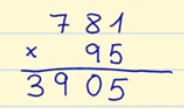 781
× 95
3905